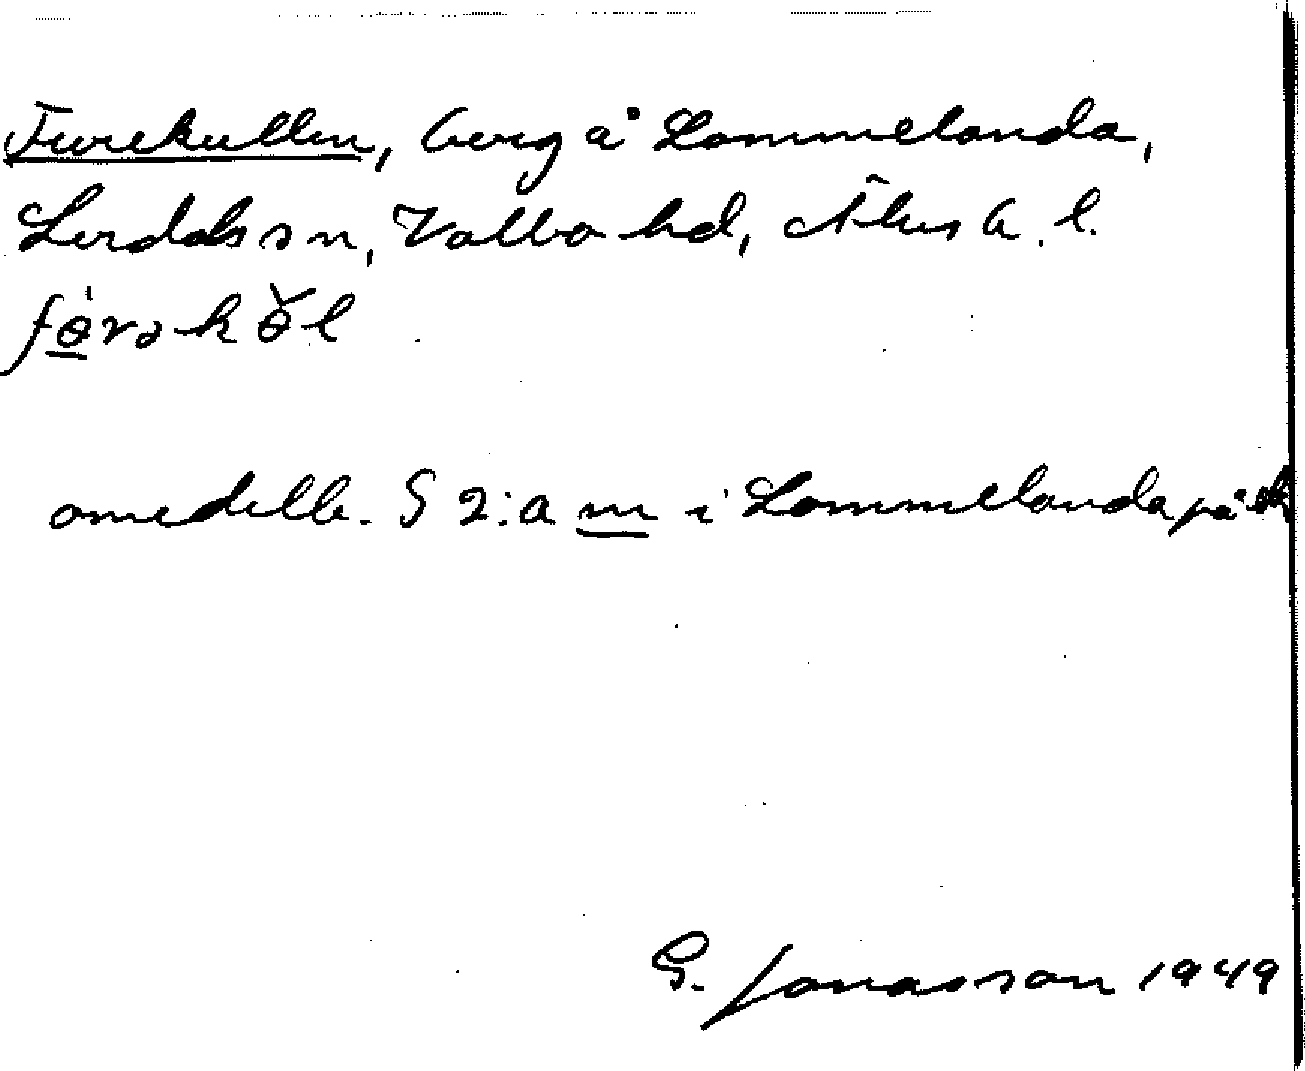 Furekullen, berg å Lommelanda,
Lerdals sn, Valbo hd, Älvsb. l.
fө̀rəkө̌l
omedelb. S 2:a m i Lommelanda på
G. Jonasson 1949